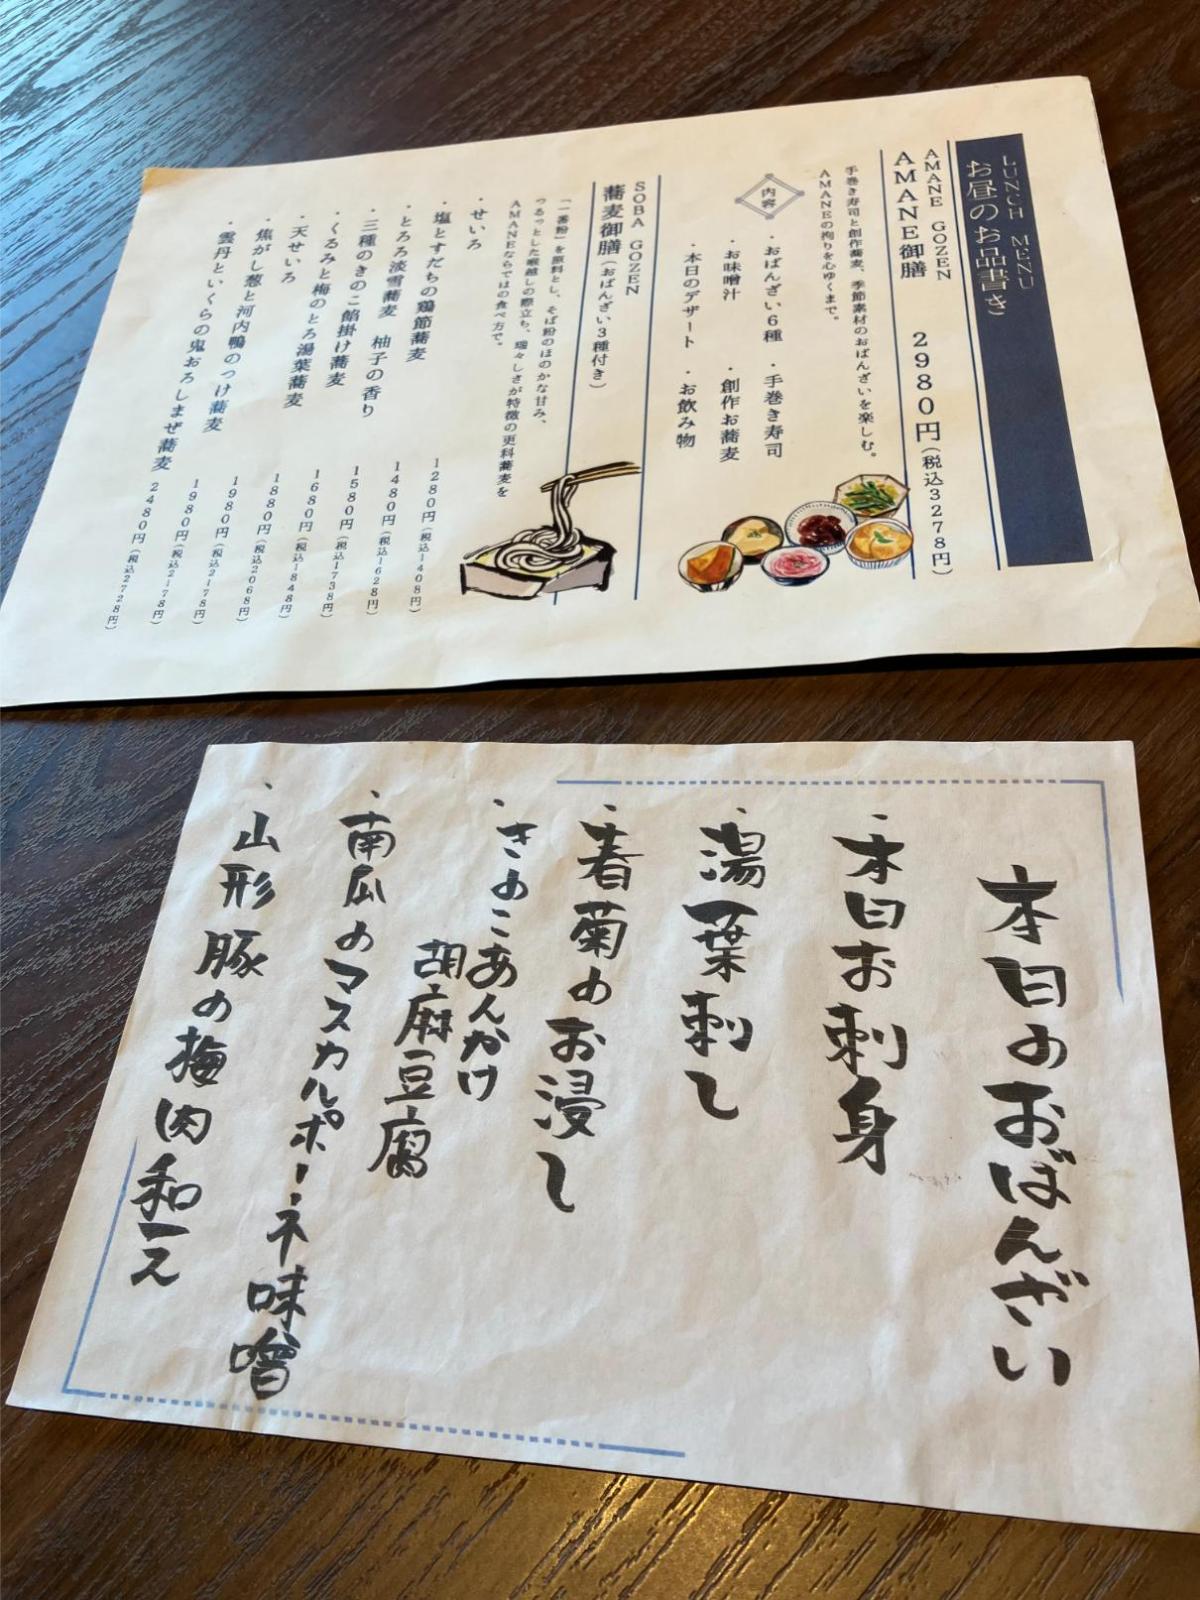 LUNCH MENU
お昼のお品書き
AMANE GOZEN
AMANE御膳 2980円(税込3278円)
手巻き寿司と創作蕎麦、季節素材のおばんざいを楽しむ。
AMANEの拘りを心ゆくまで。
内容
・おばんざい6種 ・手巻き寿司
・お味噌汁 ・創作お蕎麦
・本日のデザート ・お飲み物
SOBA GOZEN
蕎麦御膳(おばんざい3種付き)
「一番粉」を原料とし、そば粉のほのかな甘み、
つるっとした喉越しの際立ち、瑞々しさが特徴の更科蕎麦を
AMANEならではの食べ方で。
・せいろ 1280円(税込1408円)
・塩とすだちの鶏節蕎麦 1480円(税込1628円)
・とろろ淡雪蕎麦 柚子の香り 1580円(税込1738円)
・三種のきのこ餡掛け蕎麦 1680円(税込1848円)
・くるみと梅のとろ湯葉蕎麦 1880円(税込2068円)
・天せいろ 1980円(税込2178円)
・焦がし葱と河内鴨のつけ蕎麦 1980円(税込2178円)
・雲丹といくらの鬼おろしまぜ蕎麦 2480円(税込2728円)
本日のおばんざい
・本日お刺身
・湯葉刺し
・春菊のお浸し
・きのこあんかけ
胡麻豆腐
・南瓜のマスカルポーネ味噌
・山形豚の梅肉和え